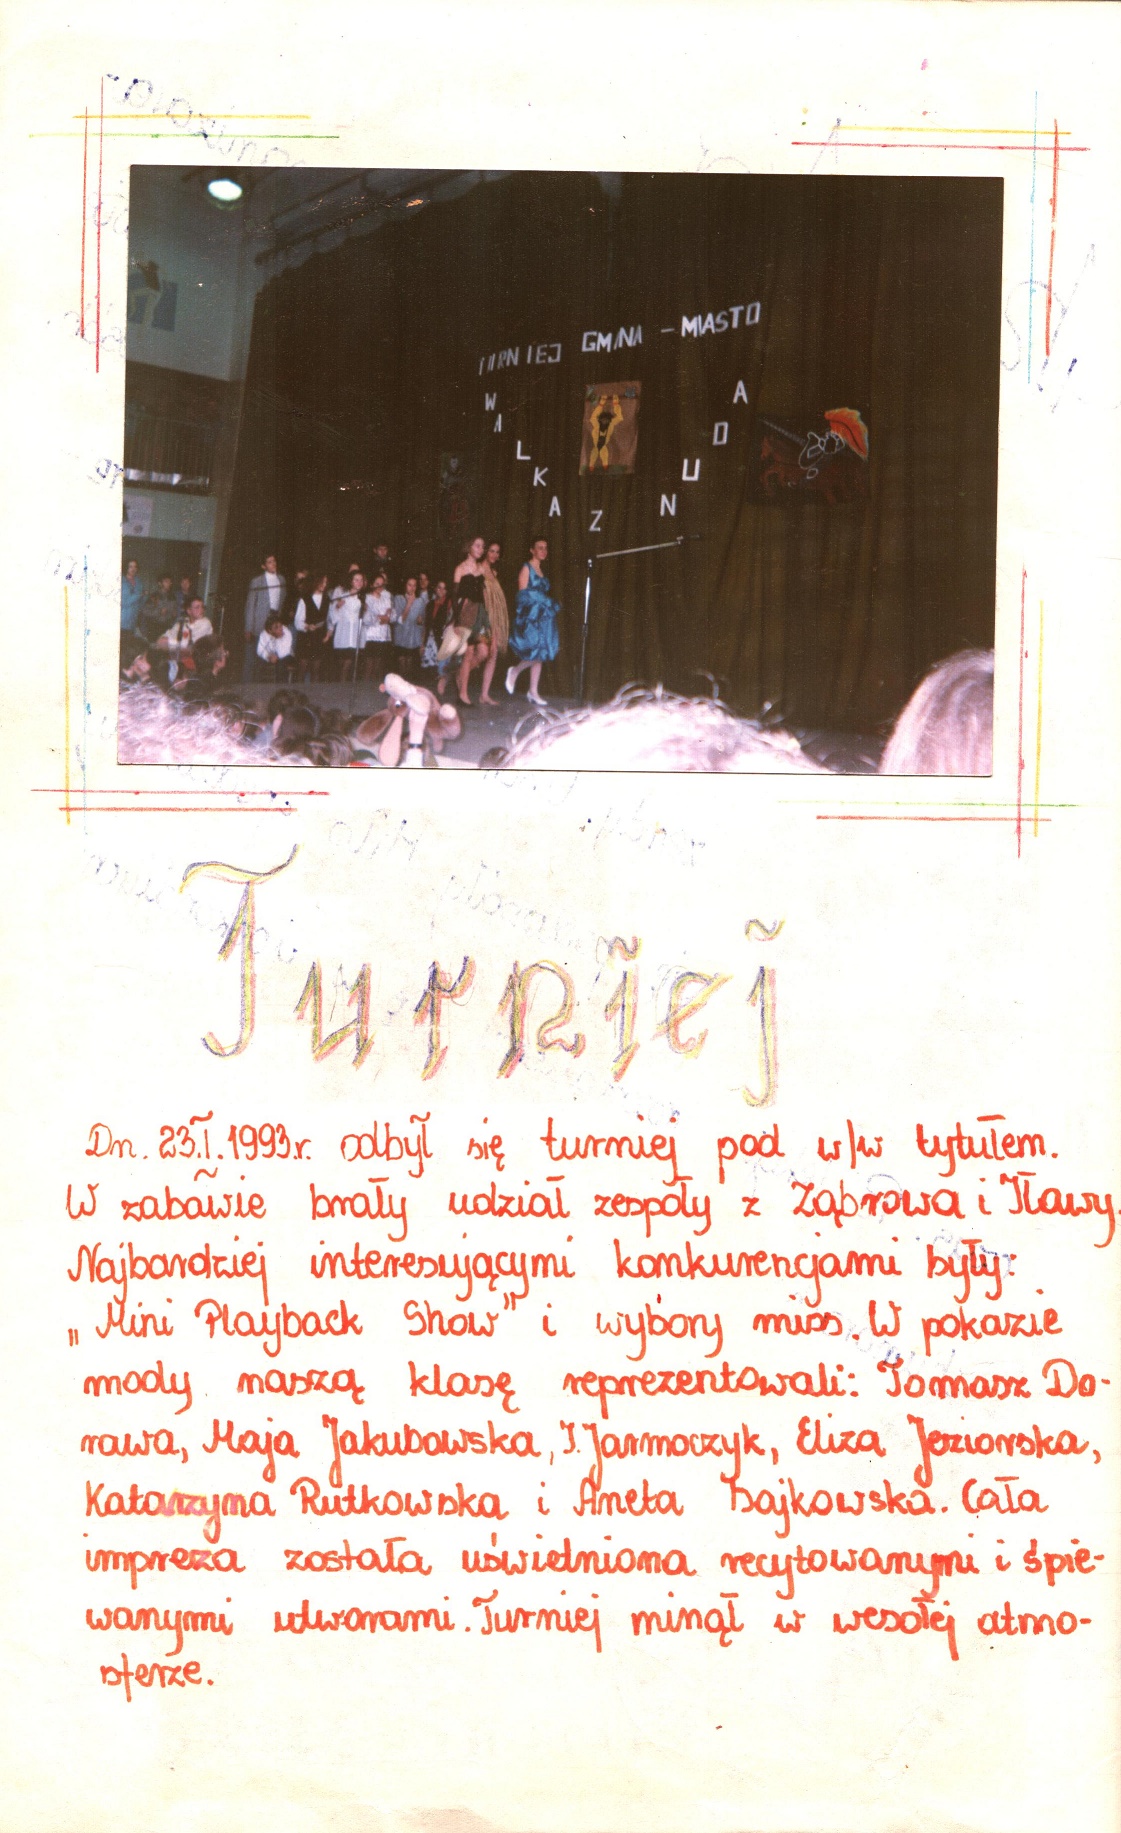 TURNIEJ GMINA - MIASTO
WALKA Z NUDA
Turniej
Dn. 23.I.1993r. odbył się turniej pod w/w tytułem.
W zabawie brały udział zespoły z Ząbrowa i Iławy.
Najbardziej interesującymi konkurencjami były:
„Mini Playback Show" i wybory miss. W pokazie
mody naszą klasę reprezentowali: Tomasz Do-
rawa, Maja Jakubowska, I. Jarmoczyk, Eliza Jeziorska,
Katarzyna Rutkowska i Aneta Bajkowska. Cała
impreza została uświetniona recytowanymi i śpie-
wanymi utworami. Turniej minął w wesołej atmo-
sferze.